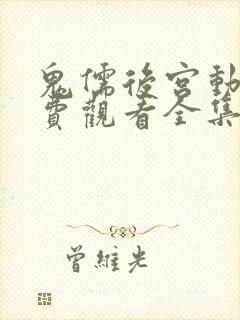 鬼儒後宮動
費觀看全集
曾維光